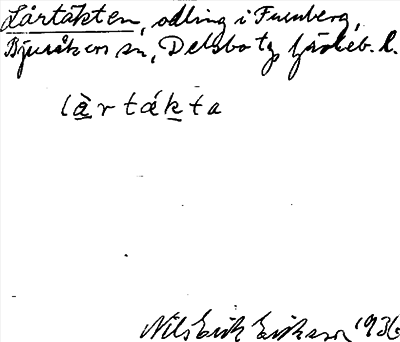 Lårtäkten, odling i Furuberg,
Bjuråkers sn, Delsbo tg Gävleb. l.
là̱rtáḵta
Nils Erik Eriksson 1936